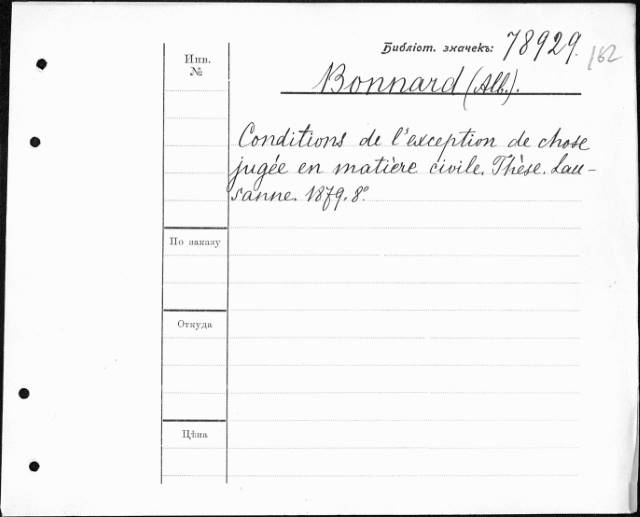 Библіот. значекъ: 78929. 162
Инв.
№
Bonnard (Alb.).
Conditions de l'exception de chose
jugée en matière civile. Thèse. Lau-
sanne. 1879. 8º.
По заказу
Откуда
Цѣна